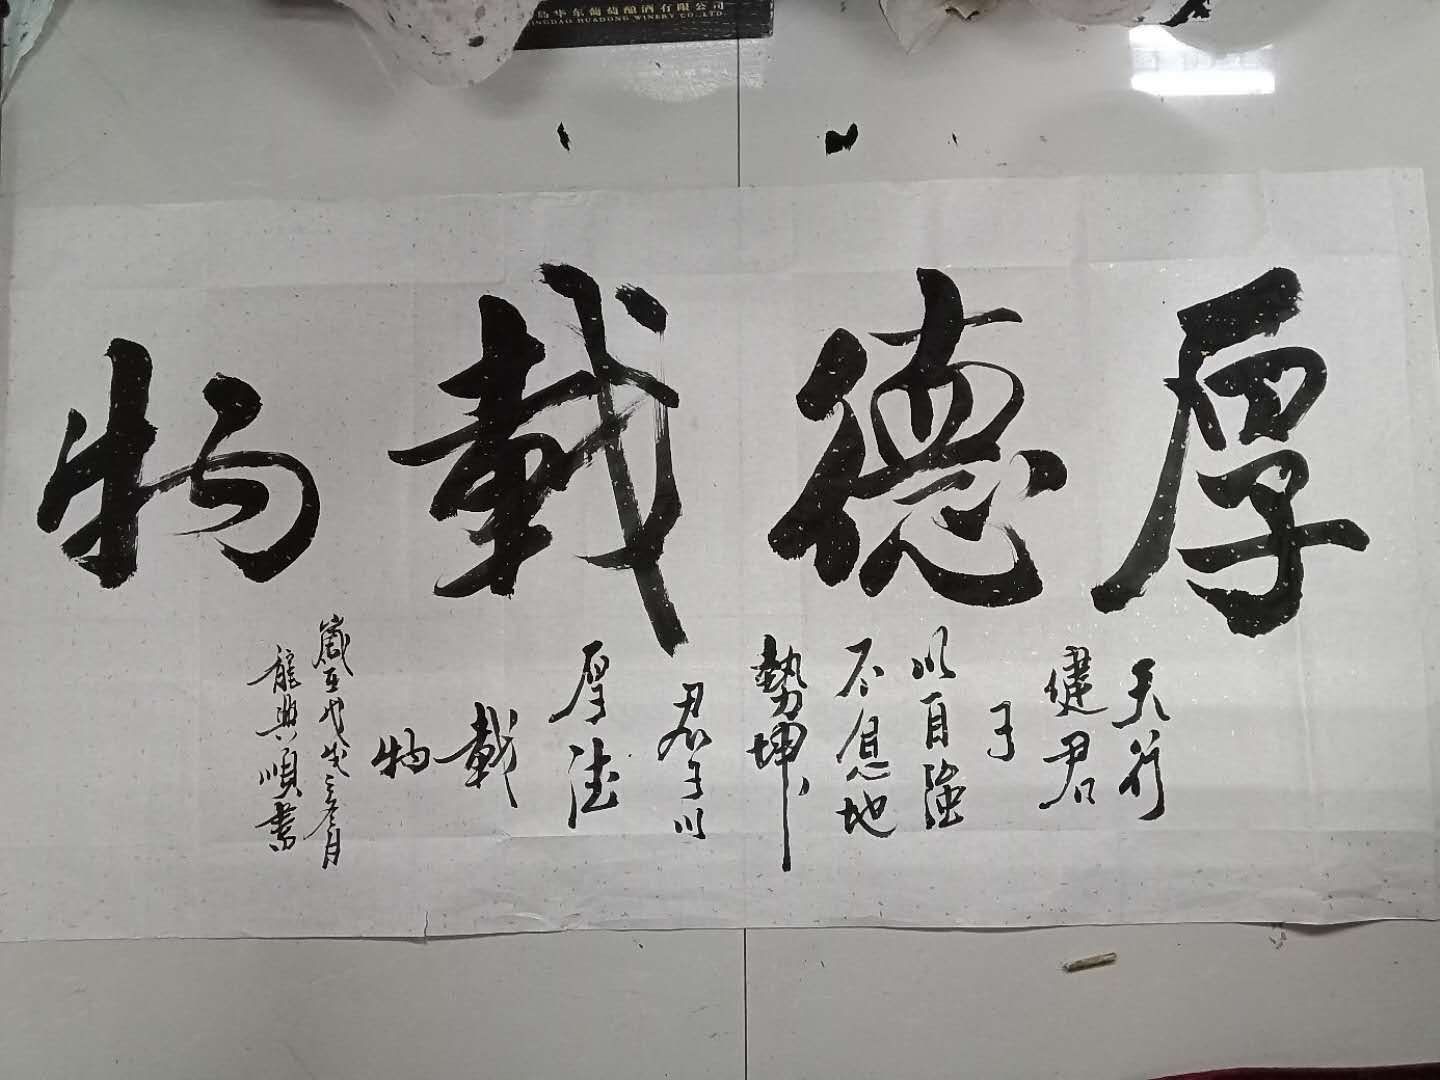 島华东葡萄酿酒有限公司
INGDAO HUADONG WINERY CO.,LTD.
厚德載物
天行
健君
子
以自強
不息地
勢坤
君子以
厚德
載
物
歲在戊戌之冬月
龍興順書